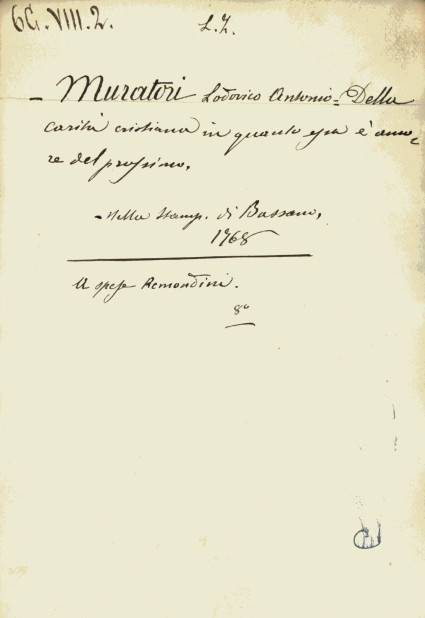 6G.VIII.2.
L.Z.
– Muratori Lodovico Antonio = Della
carità cristiana in quanto essa è amo=
re del prossimo.
– nella Stamp. di Bassano,
1768
A spese Remondini.
8º